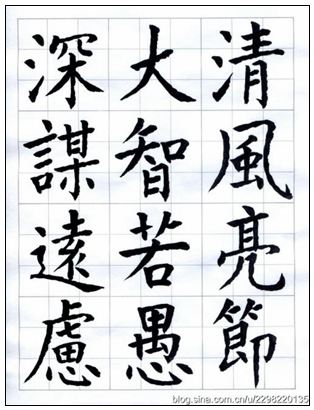 清風亮節
大智若愚
深謀遠慮
blog.sina.com.cn/u/2298220135